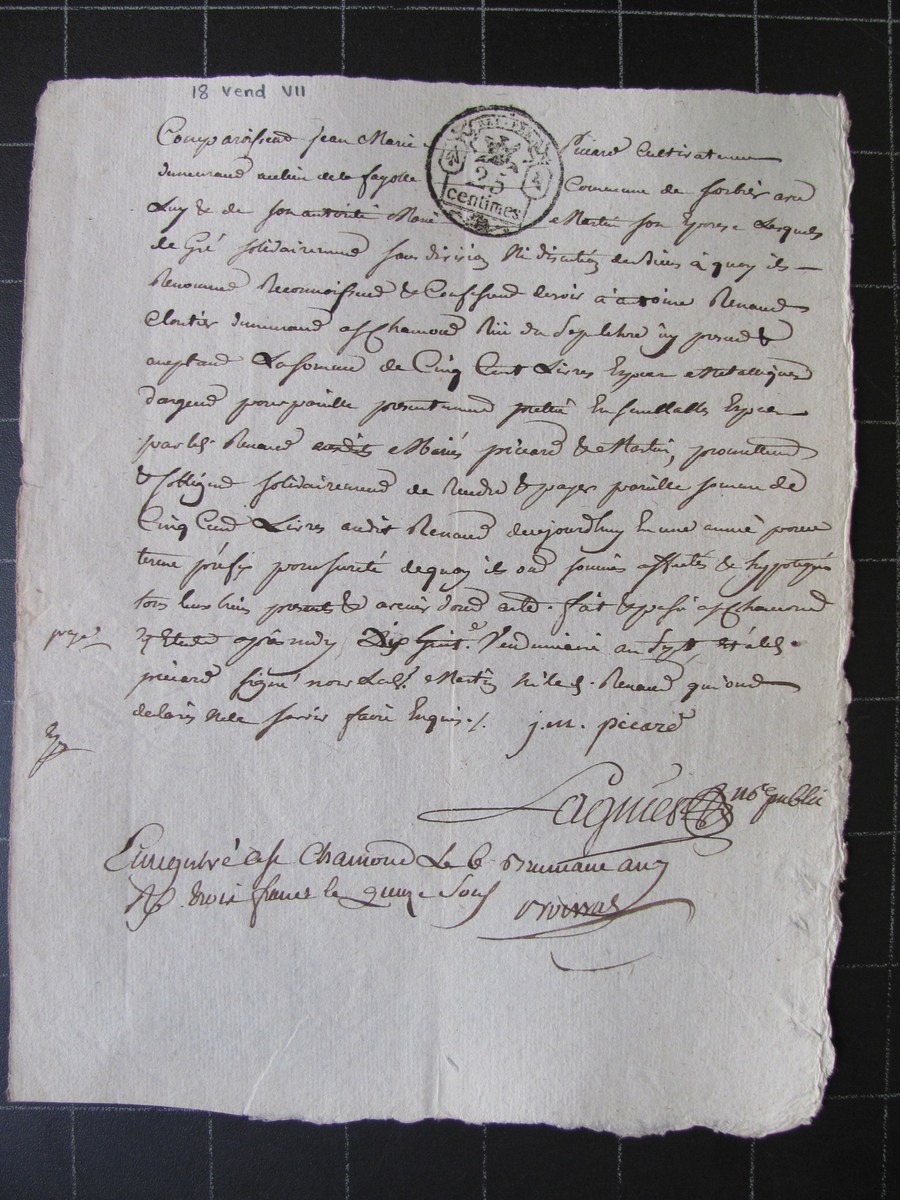 18 Vend VII
Comparoissent Jean Marie Picard Cultivateur
RÉP. FRA.
25
centimes
demeurand au lieu de la fayolle Commune de Sorbier avec
Luy & de son autorité Marie Martin son Epouse Lesquels
de Gré solidairement sans division Ni discution de biens à quoy ils
Renoncent Reconnoissent & Confessent devoir à antoine Renaud
Cloutier demeurand a St Chamond Rüe du Sepulchre icy present &
aceptand La somme de Cinq Cent Livres Especes Metalliques
d'argend pour pareille presentement prettée En semblables Especes
par led. Renaud auxdits Mariés picard & Martin, promettent
& s'obligent solidairement de Rendre & payer pareille somme de
Cinq Cend Livres audit Renaud dans jourd'huy En une année pour
terme préfix pour sureté de quoy ils ont soumis affectés & hypotequés
tous leurs biens presents & avenir dont acte. fait & passé a St Chamond
Etude après midy, Dix huit.e Vendemiaire an Sept led.
picard signé non Lad.e Martin ni led. Renaud qui ont
declarés ne le savoir faire Enquis ./. j. m. picard
Lagniel no.re public
Enregistré a St Chamond Le 6 Brumaire an 7
R. trois francs le quinze Sols